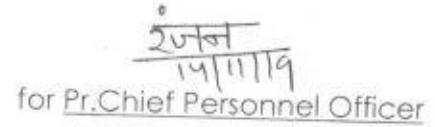 रंजन
14/11/19
for Pr.Chief Personnel Officer